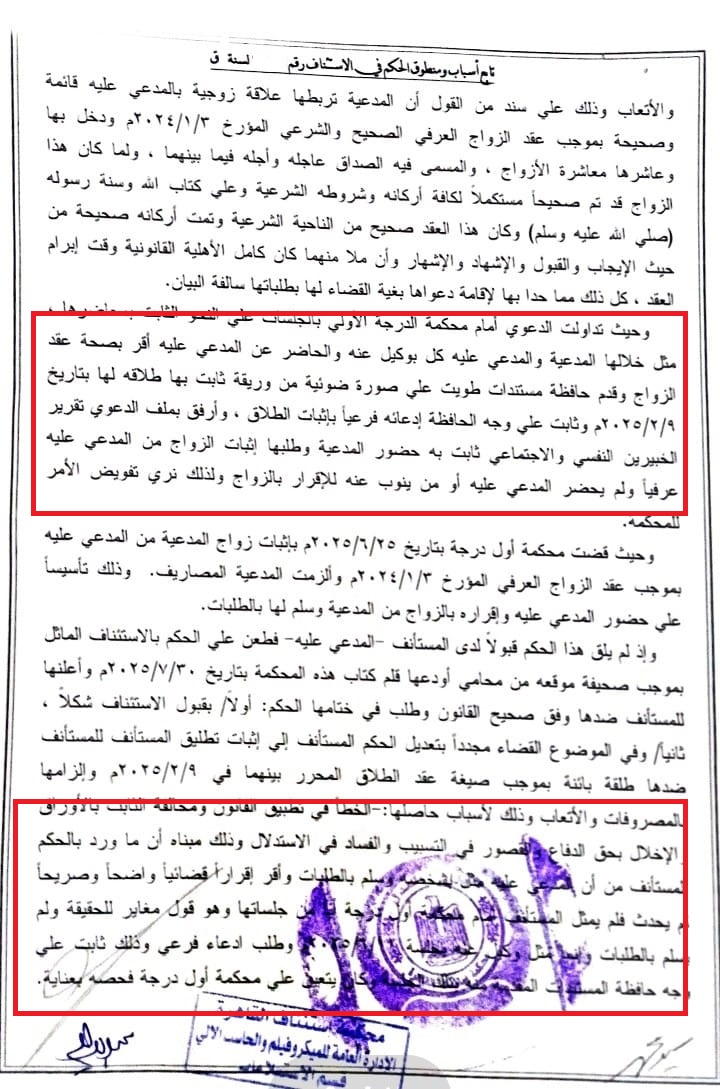 تابع أسباب ومنطوق الحكم في الاستئناف رقم لسنة ق
والأتعاب وذلك علي سند من القول أن المدعية تربطها علاقة زوجية بالمدعي عليه قائمة
وصحيحة بموجب عقد الزواج العرفي الصحيح والشرعي المؤرخ ٢٠٢٤/١/٣م ودخل بها
وعاشرها معاشرة الأزواج ، والمسمى فيه الصداق عاجله وأجله فيما بينهما ، ولما كان هذا
الزواج قد تم صحيحاً مستكملاً لكافة أركانه وشروطه الشرعية وعلي كتاب الله وسنة رسوله
(صلي الله عليه وسلم) وكان هذا العقد صحيح من الناحية الشرعية وتمت أركانه صحيحة من
حيث الإيجاب والقبول والإشهاد والإشهار وأن ملا منهما كان كامل الأهلية القانونية وقت إبرام
العقد ، كل ذلك مما حدا بها لإقامة دعواها بغية القضاء لها بطلباتها سالفة البيان.
وحيث تداولت الدعوي أمام محكمة الدرجة الأولي بالجلسات علي النحو الثابت بمحاضرها ،
مثل خلالها المدعية والمدعي عليه كل بوكيل عنه والحاضر عن المدعي عليه أقر بصحة عقد
الزواج وقدم حافظة مستندات طويت علي صورة ضوئية من وريقة ثابت بها طلاقه لها بتاريخ
٢٠٢٥/٢/٩م وثابت علي وجه الحافظة إدعائه فرعياً بإثبات الطلاق ، وأرفق بملف الدعوي تقرير
الخبيرين النفسي والاجتماعي ثابت به حضور المدعية وطلبها إثبات الزواج من المدعي عليه
عرفياً ولم يحضر المدعي عليه أو من ينوب عنه للإقرار بالزواج ولذلك نري تفويض الأمر
للمحكمة.
وحيث قضت محكمة أول درجة بتاريخ ٢٠٢٥/٦/٢٥م بإثبات زواج المدعية من المدعي عليه
بموجب عقد الزواج العرفي المؤرخ ٢٠٢٤/١/٣م وألزمت المدعية المصاريف. وذلك تأسيساً
علي حضور المدعي عليه وإقراره بالزواج من المدعية وسلم لها بالطلبات.
وإذ لم يلق هذا الحكم قبولاً لدى المستأنف -المدعي عليه- فطعن علي الحكم بالاستئناف الماثل
بموجب صحيفة موقعه من محامي أودعها قلم كتاب هذه المحكمة بتاريخ ٢٠٢٥/٧/٣٠م وأعلنها
للمستأنف ضدها وفق صحيح القانون وطلب في ختامها الحكم: أولاً/ بقبول الاستئناف شكلاً ،
ثانياً/ وفي الموضوع القضاء مجدداً بتعديل الحكم المستأنف إلي إثبات تطليق المستأنف للمستأنف
ضدها طلقة بائنة بموجب صيغة عقد الطلاق المحرر بينهما في ٢٠٢٥/٢/٩م وإلزامها
بالمصروفات والأتعاب وذلك لأسباب حاصلها:-الخطأ في تطبيق القانون ومخالفة الثابت بالأوراق
والإخلال بحق الدفاع والقصور في التسبيب والفساد في الاستدلال وذلك مبناه أن ما ورد بالحكم
المستأنف من أن المدعي عليه مثل بشخصه وسلم بالطلبات وأقر إقراراً قضائياً واضحاً وصريحاً
لم يحدث فلم يمثل المستأنف أمام محكمة أول درجة من جلساتها وهو قول مغاير للحقيقة ولم
يسلم بالطلبات مثل وكيل عنه بجلسة وطلب ادعاء فرعي وذلك ثابت علي
وجه حافظة المستندات المقدمة منه بتلك الجلسة وكان يتعين علي محكمة أول درجة فحصه بعناية.
محكمة استئناف القاهرة
الادارة العامة للميكروفيلم والحاسب الالي
قسم الاستعلامات